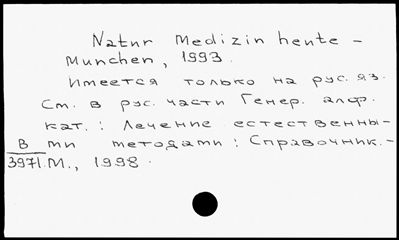 Natur Medizin heute –
Munchen, 1993.
Имеется только на рус. яз.
См. в рус. части Генер. алф.
кат.: Лечение естественны-
ми методами: Справочник. –
М., 1998.
В
3971